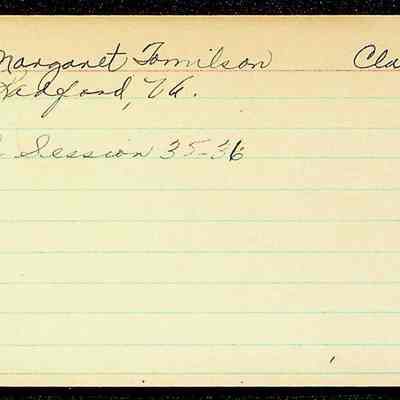 Margaret Tomilson Cla
Radford, Va.
Session 35-36